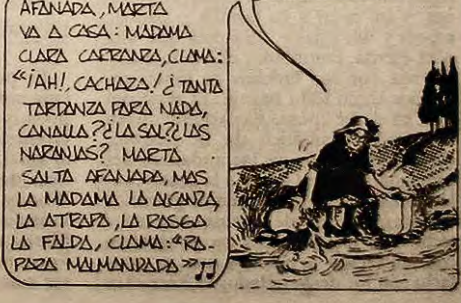 AFANADA, MARTA
VA A CASA: MADAMA
CLARA CARRANZA, CLAMA:
“¡AH!, CACHAZA! ¿TANTA
TARDANZA PARA NADA,
CANALLA? ¿LA SAL? ¿LAS
NARANJAS? MARTA
SALTA AFANADA, MAS
LA MADAMA LA ALCANZA,
LA ATRAPA, LA RASGA
LA FALDA, CLAMA: “RA-
PAZA MALMANDADA” ♫